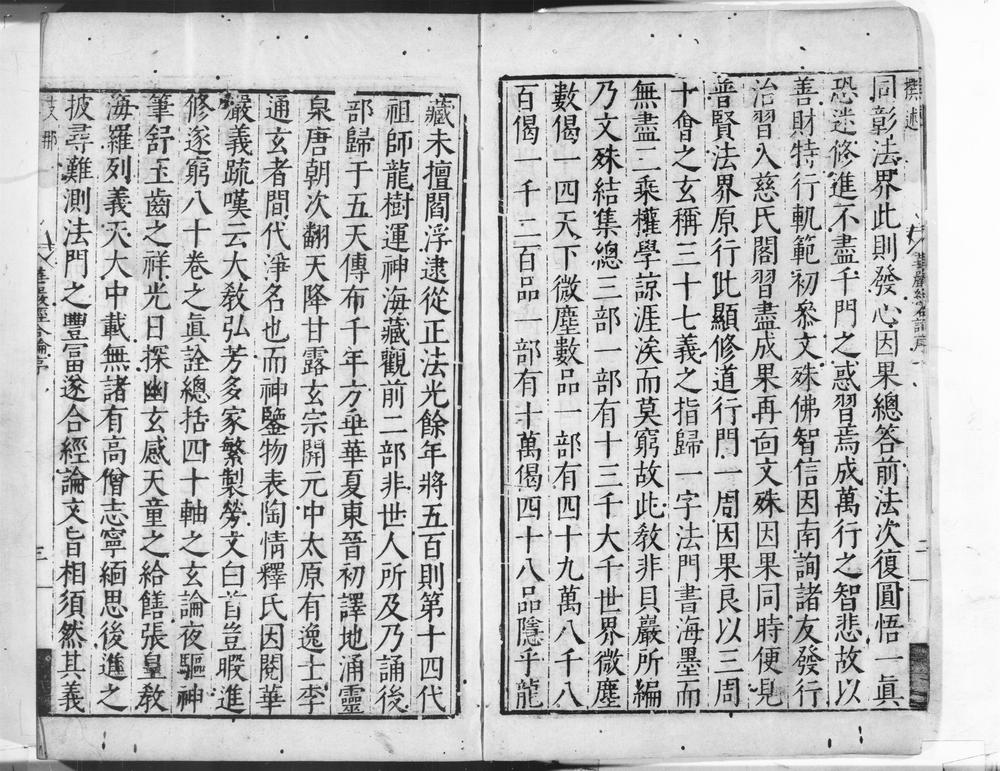 撰述
華嚴經合論序
二
同彰法界此則發心因果總答前法次復圓悟一眞
恐迷修進不盡千門之惑習焉成萬行之智悲故以
善財特行軌範初參文殊佛智信因南詢諸友發行
治習入慈氏閣習盡成果再囬文殊因果同時便見
普賢法界原行此顯修道行門一周因果良以三周
十會之玄稱三十七義之指歸一字法門書海墨而
無盡二乘權學諒涯涘而莫窮故此敎非貝嚴所編
乃文殊結集總三部一部有十三千大千世界微塵
數偈一四天下微塵數品一部有四十九萬八千八
百偈一千二百品一部有十萬偈四十八品隱乎龍
藏未擅閻浮逮從正法光餘年將五百則第十四代
祖師龍樹運神海藏觀前二部非世人所及乃誦後
部歸于五天傳布千年方垂華夏東晉初譯地涌靈
泉唐朝次翻天降甘露玄宗開元中太原有逸士李
通玄者間代淨名也而神鑒物表陶情釋氏因閱華
嚴義疏嘆云大敎弘芳多家繁製勞文白首豈暇進
修逐窮八十卷之眞詮總括四十軸之玄論夜驅神
筆舒玉齒之祥光日探幽玄感天童之給饍張皇敎
海羅列義天大中載無諸有高僧志寧緬思後進之
披尋難測法門之豐富遂合經論文旨相須然其義
華嚴經合論序
三